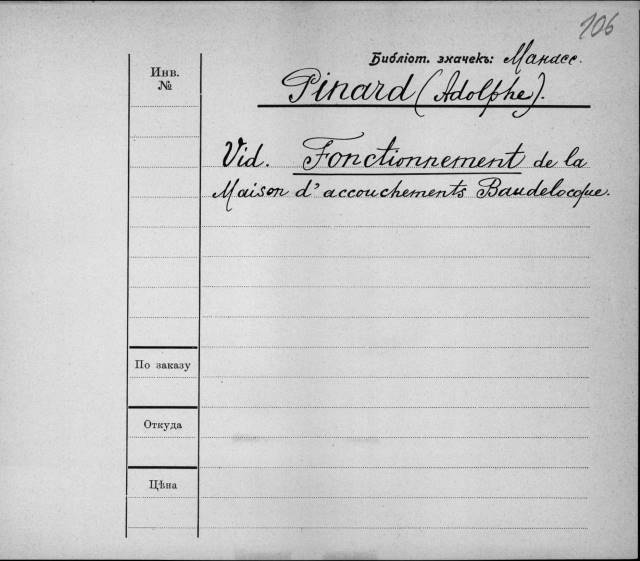 106
Библіот. значекъ: Манасс.
Инв.
№
Pinard (Adolphe).
Vid. Fonctionnement de la
Maison d'accouchements Baudelocque.
По заказу
Откуда
Цѣна